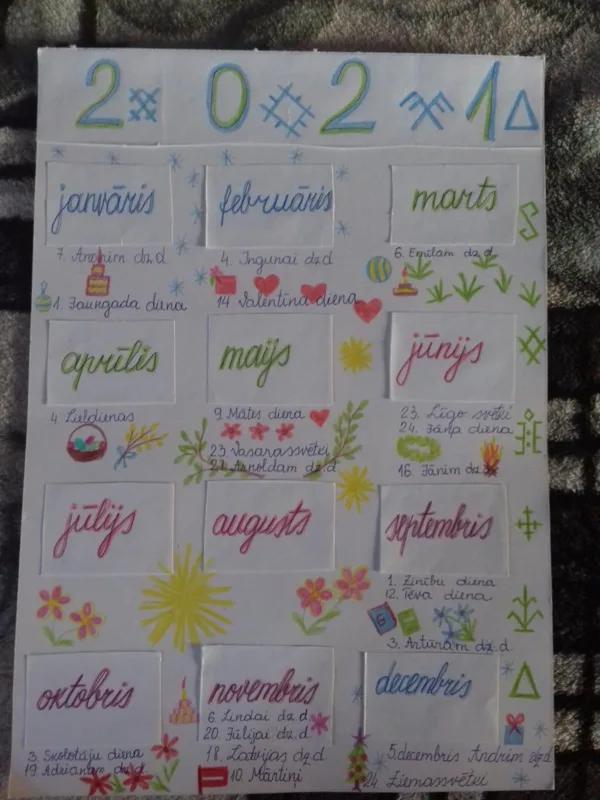 2021
janvāris
februāris
marts
7. dz.d
4. Ingunai dz.d
6. Emīlam dz.d
1. Jaungada diena
14. Valentīna diena
aprīlis
maijs
jūnijs
4. Lieldienas
9. Mātes diena
23. Vasarassvētki
21. Arnoldam dz.d
23. Līgo svētki
24. Jāņa diena
16. Jānim dz.d
jūlijs
augusts
septembris
1. Zinību diena
12. Tēva diena
3. Artūram dz.d
oktobris
novembris
decembris
3. Skolotāju diena
19. Adrianam dz.d
6. Lindai dz.d.
20. Jūlijai dz.d.
18. Latvijas dz.d
10. Mārtiņi
5.decembris Andrim dz.d
24. Ziemassvētki